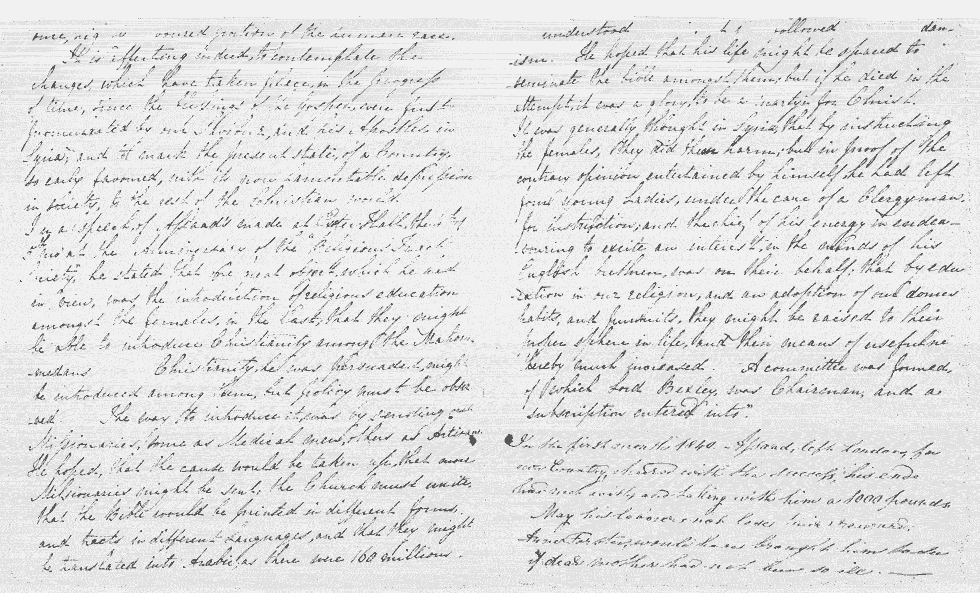 portion of the human race.
It is affecting indeed, to contemplate the
changes, which have taken place, in the progress
of time, since the blessings of the gospel, were first
promulgated by our Saviour, and his Apostles, in
Syria; and to mark the present state, of a Country,
so early favoured, with its now lamentable depression
in society, to the rest of the Christian world.
In a speech, of Assaad's made at Exeter Hall, the
at the Anniversary of the Religious Tract
he stated that the great object, which he had
in view, was the introduction of religious education
amongst the females, in the East, that they might
be able to introduce Christianity among the Mahom-
-medans Christianity, he was persuaded, might
be introduced among them, but policy must be obser
-ved. The way to introduce it, was by sending out
Missionaries, some as Medical men, others as Artizans.
He hoped, that the cause would be taken up, that more
Missionaries might be sent; the Church must unite,
that the Bible would be printed in different forms,
and tracts in different languages, and that they might
be translated into Arabic, as there were 160 millions.
understood followed
-ism. He hoped that his life might be spared to
seminate the bible amongst them; but if he died in the
attempt, it was a glory, to be a martyr for Christ.
It was generally, thought in Syria, that by instructing
the females, they did them harm; but in proof of the
contrary opinion entertained by himself, he had left
four young Ladies, under the care of a Clergyman.
for instruction; and the chief of his energy in endea-
vouring to excite an interest in the minds of his
English brethren, was on their behalf; that by edu
-cation in our religion, and an adoption of our domes
habits, and pursuits, they might be raised to their
proper sphere in life, and their means of usefulne
thereby much increased. A committee was formed,
of which Lord Bexley, was Chairman, and a
Subscription entered into".
In the first month 1840. Assaad, left London, for
own Country, with the success, his
had met with, and taking with him a 1000 pounds
May his not lose their reward.
would have brought him
if dear mother had not been so ill.